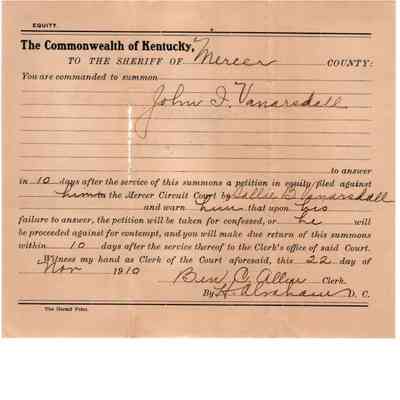 EQUITY.
The Commonwealth of Kentucky,
TO THE SHERIFF OF Mercer COUNTY:
You are commanded to summon
John I. Vanarsdall
to answer
in 10 days after the service of this summons a petition in equity filed against
him in the Mercer Circuit Court by Sallie B. Vanarsdall
and warn him that upon his
failure to answer, the petition will be taken for confessed, or he will
be proceeded against for contempt, and you will make due return of this summons
within 10 days after the service thereof to the Clerk's office of said Court.
Witness my hand as Clerk of the Court aforesaid, this 22 day of
Nov 1910
Ben C. Allin Clerk.
By H. Abraham D. C.
The Herald Print.